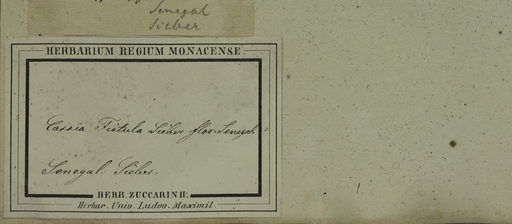 Senegal
Sieber
HERBARIUM REGIUM MONACENSE
Cassia Fistula Sieber flor. Senegal.
Senegal. Sieber.
HERB. ZUCCARINII.
Herbar. Univ. Ludov. Maximil.